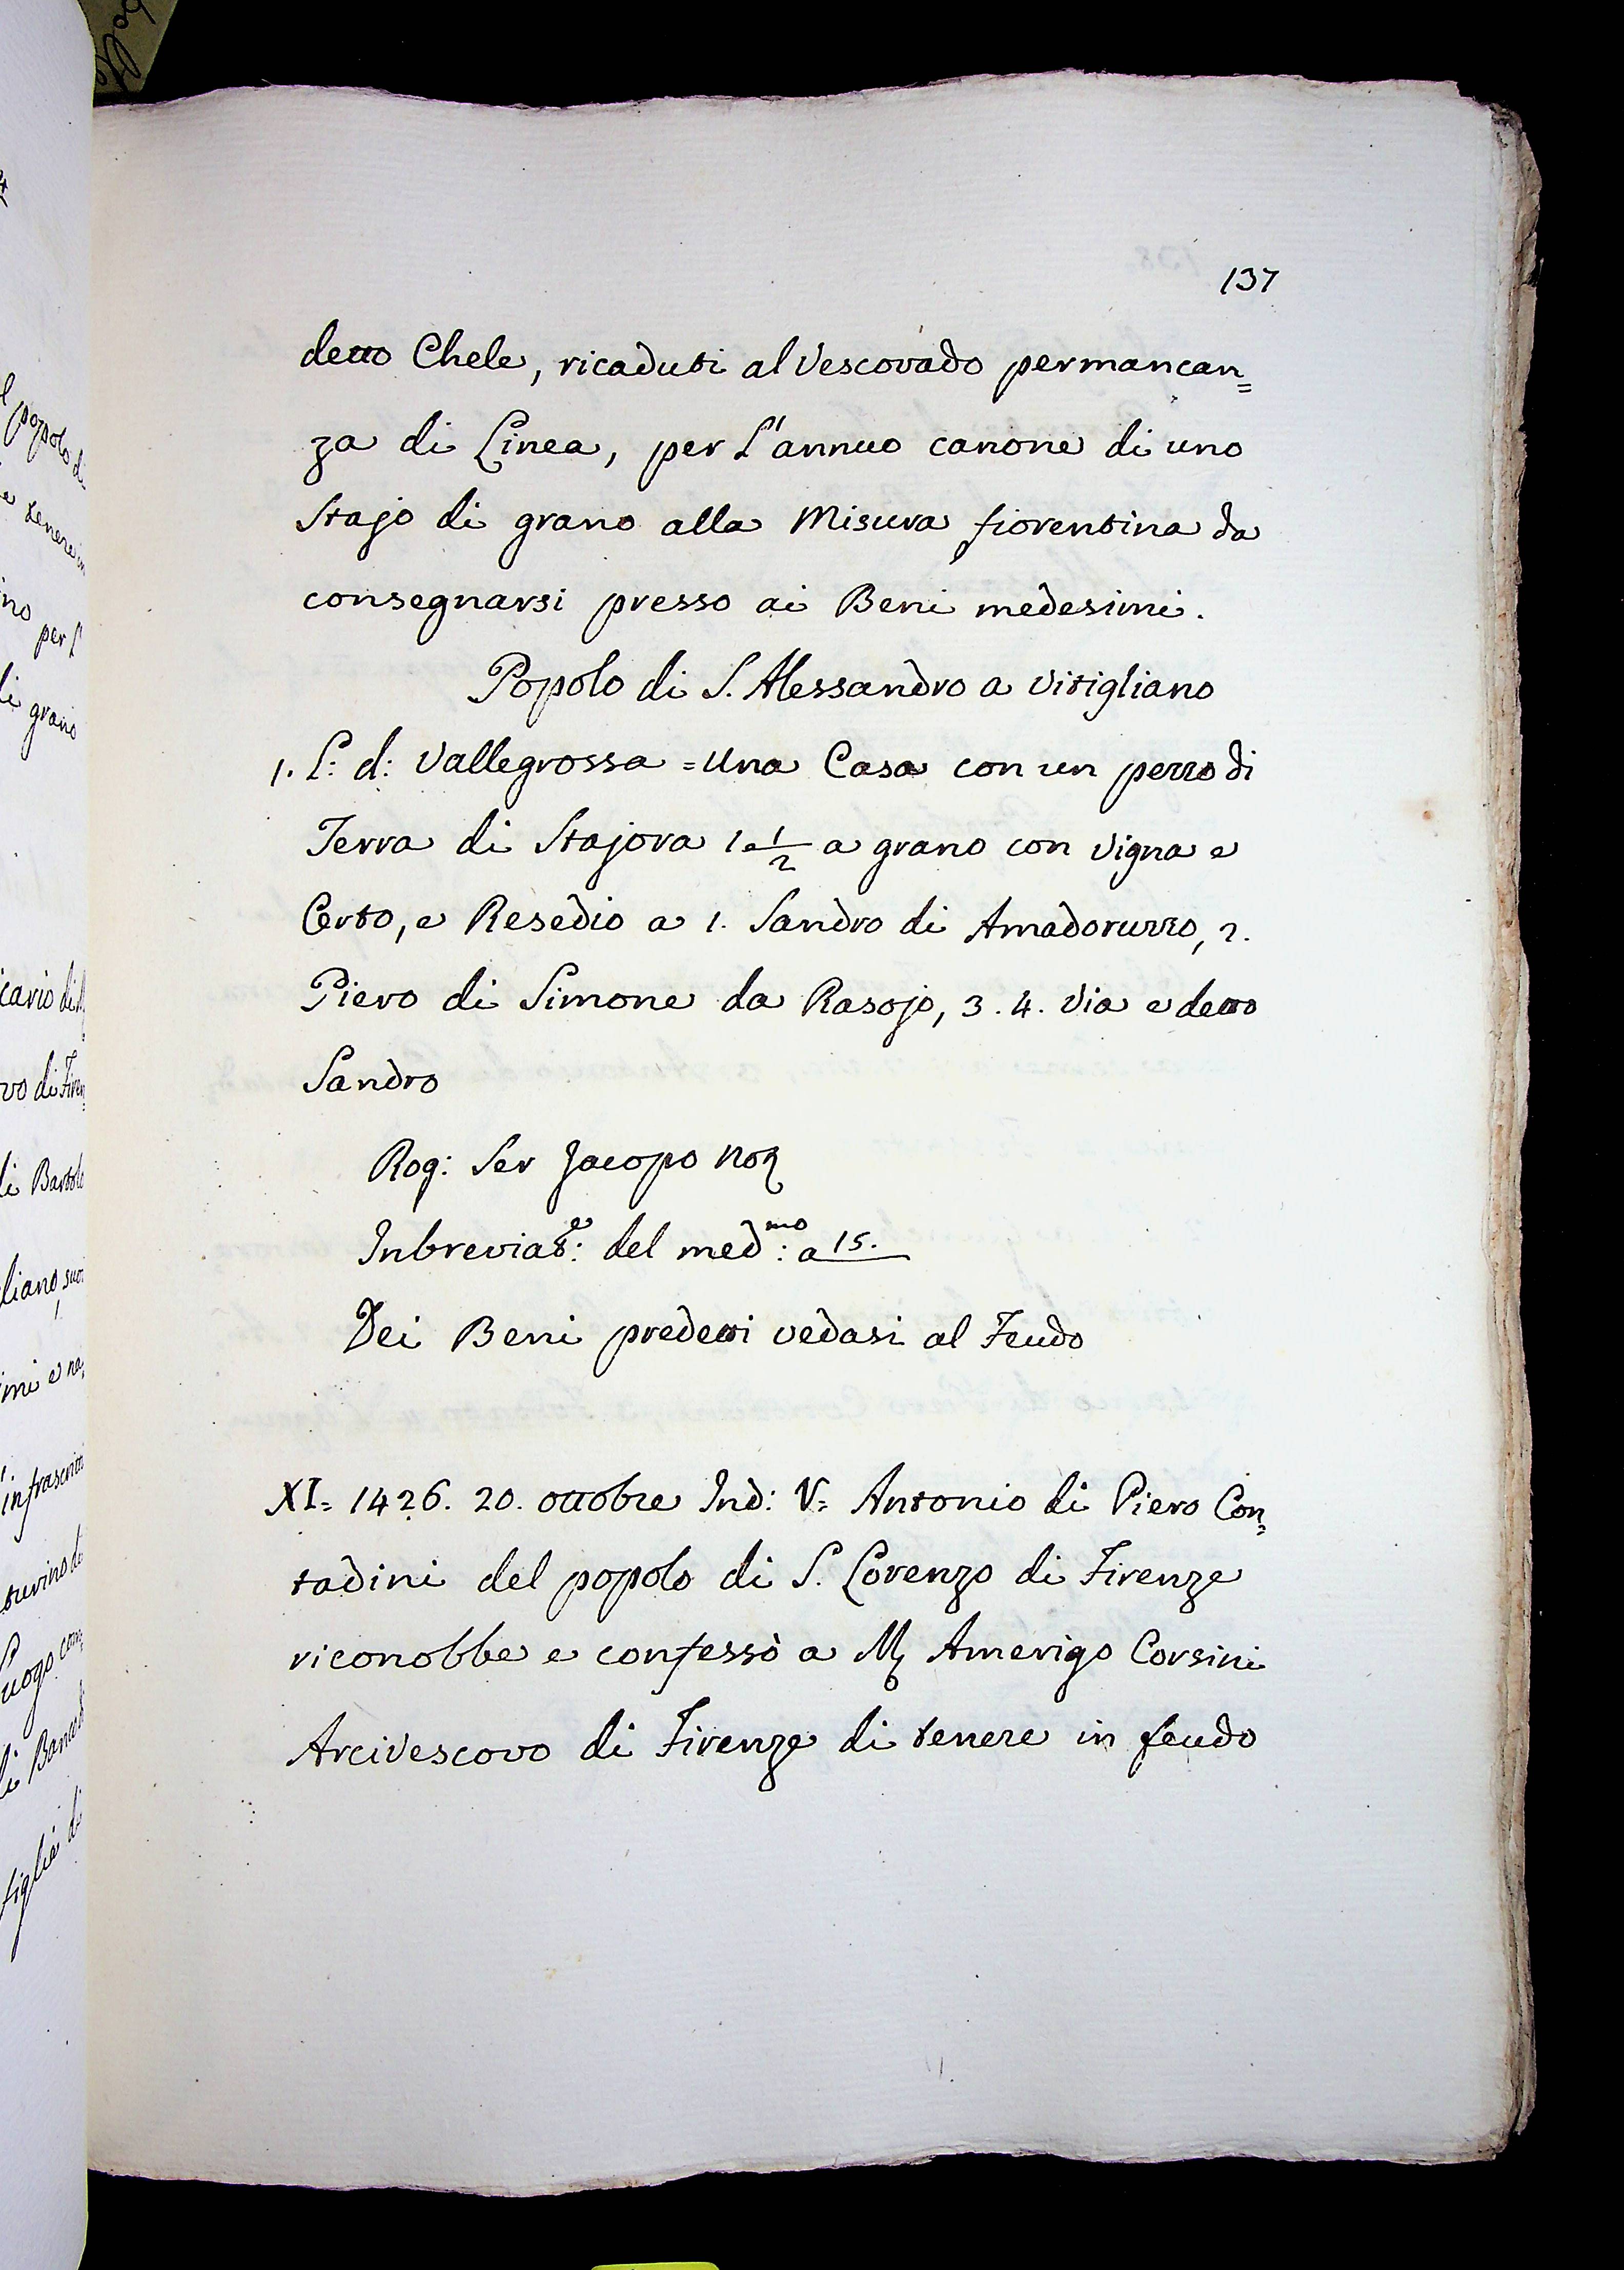 137
detto Chele, ricaduti al Vescovado per mancan=
za di Linea, per l'annuo canone di uno
Stajo di grano alla Misura fiorentina da
consegnarsi presso ai Beni medesimi.
Popolo di S. Alessandro a Vitigliano
1. L: d: Vallegrossa = Una Casa con un pezzo di
Terra di Stajora 1 e 1/2 a grano con Vigna e
Certo, e Resedio a 1. Sandro di Amadoruzzo, 2.
Piero di Simone da Rasojo, 3. 4. Via e detto
Sandro
Rog: Ser Jacopo
Inbreviat.e: del med.mo: a 15.
Dei Beni predetti vedasi al Feudo
XI= 1426. 20. ottobre Ind: V= Antonio di Piero Con=
tadini del popolo di S. Lorenzo di Firenze
riconobbe e confessò a M Amerigo Corsini
Arcivescovo di Firenze di tenere in feudo